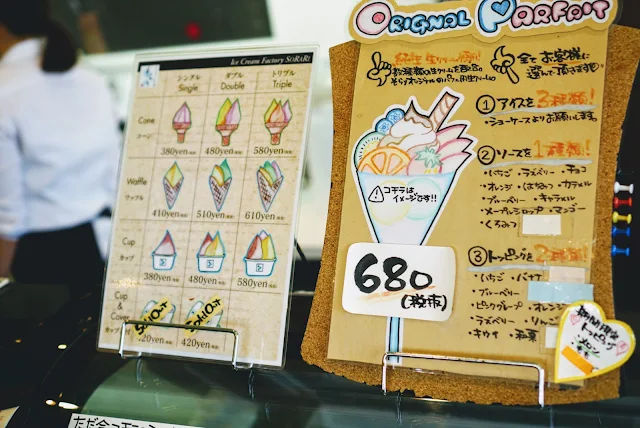 Ice Cream Factory SORARI
シングル ダブル トリプル
Single Double Triple
Cone
コーン
380yen 480yen 580yen
Waffle
ワッフル
410yen 510yen 610yen
Cup
カップ
380yen 480yen 580yen
Cup
&
Cover
SOLD OUT SOLD OUT
420yen 420yen
ORIGNAL PARFAIT
全てお客様に
選んで頂きます。
①アイスを3種類!
・ショーケースよりお願いします。
②ソースを1種類!
・いちご・ラズベリー・チョコ
・オレンジ・はちみつ・カラメル
・ブルーベリー・キャラメル
・メープルシロップ・マンゴー
・くろみつ
③トッピングを2種類!
・いちご・バナナ
・ブルーベリー
・ピンクグレープ・オレンジ
・ラズベリー・りんご
・キウイ
コチラは
イメージです!!
680